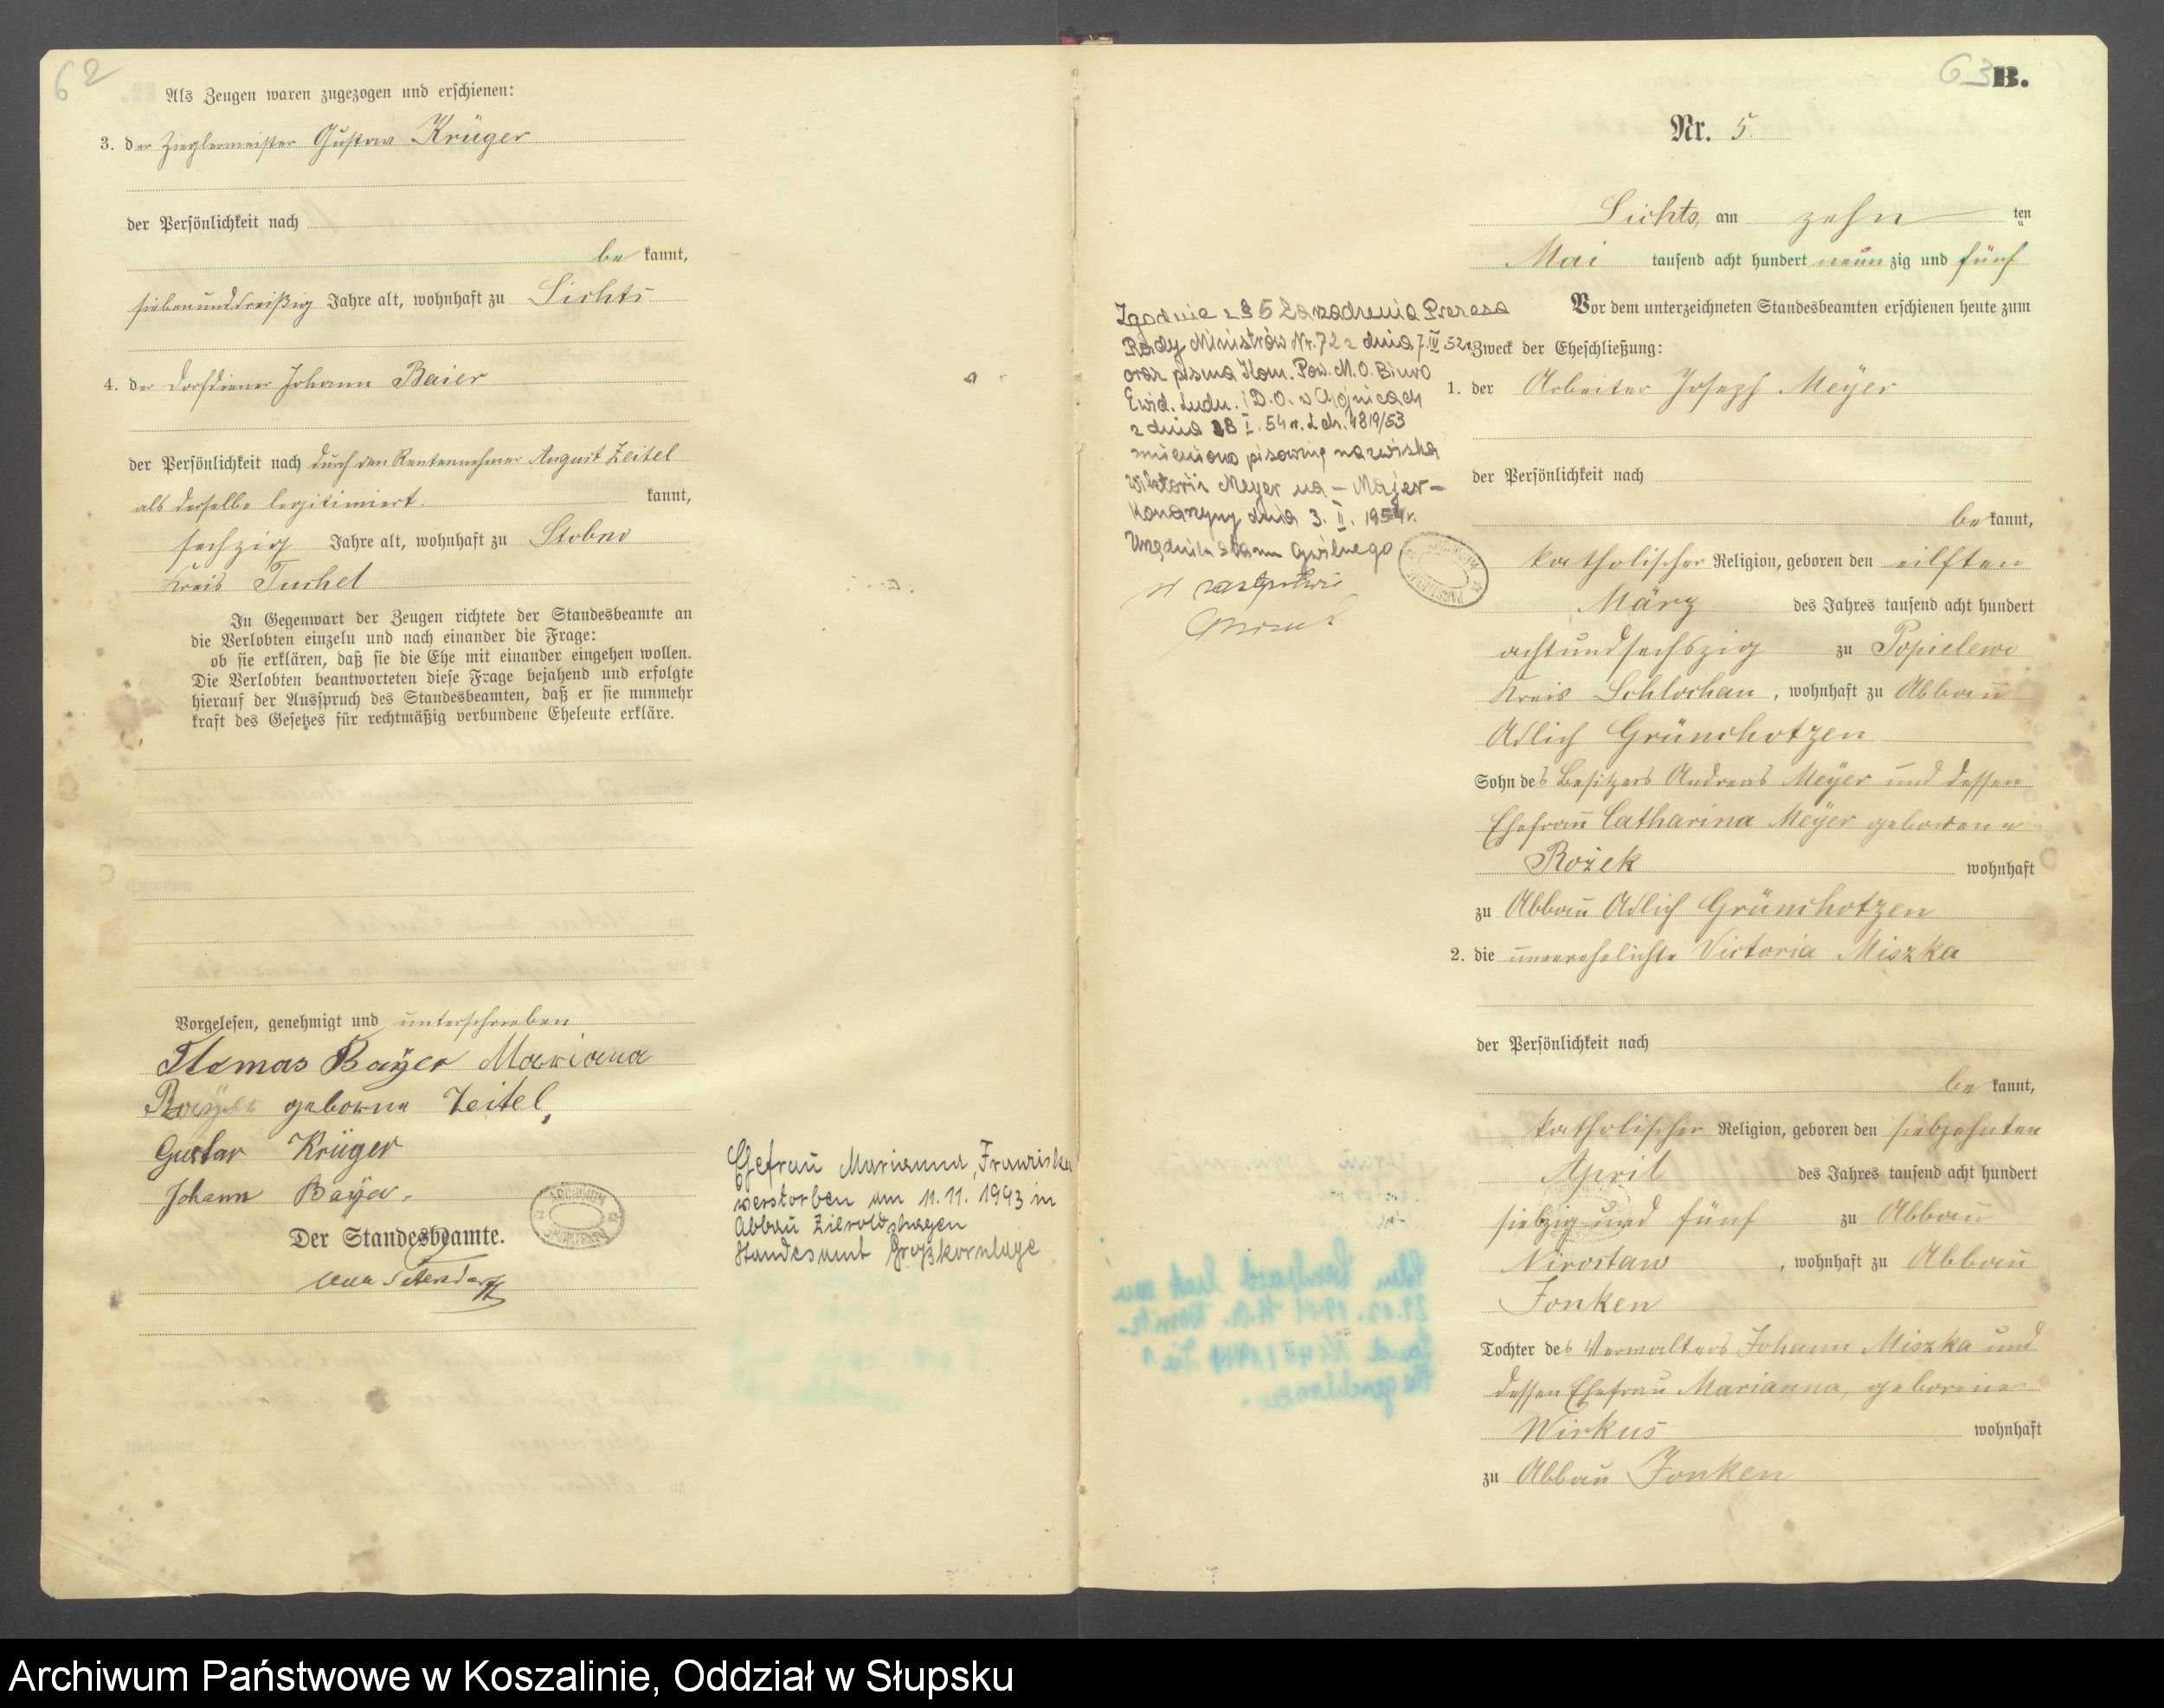 62
Als Zeugen waren zugezogen und erschienen:
3. der Zieglermeister Gustav Krüger
der Persönlichkeit nach
be kannt,
siebenunddreißig Jahre alt, wohnhaft zu Lichts
4. der Dorfdiener Johann Baier
der Persönlichkeit nach durch den Rentennehmer August Zeitel
als derselbe legitimiert. kannt,
sechzig Jahre alt, wohnhaft zu Stobno
Kreis Tuchel
In Gegenwart der Zeugen richtete der Standesbeamte an
die Verlobten einzeln und nach einander die Frage:
ob sie erklären, daß sie die Ehe mit einander eingehen wollen.
Die Verlobten beantworteten diese Frage bejahend und erfolgte
hierauf der Ausspruch des Standesbeamten, daß er sie nunmehr
kraft des Gesetzes für rechtmäßig verbundene Eheleute erkläre.
Vorgelesen, genehmigt und unterschrieben
Thomas Bayer Mariana
geborne Zeitel,
Gustav Krüger
Johann Bayer.
Der Standesbeamte.
Ehefrau Marianna, Franziska
verstorben am 11. 11. 1943 in
Abbau Zieroldshagen
Standesamt Großkornlage
63 B.
Nr. 5.
Lichts, am zehn ten
Mai tausend acht hundert neunzig und fünf
Vor dem unterzeichneten Standesbeamten erschienen heute zum
Zweck der Eheschließung:
1. der Arbeiter Joseph Meyer
der Persönlichkeit nach
be kannt,
katholischer Religion, geboren den eilften
März des Jahres tausend acht hundert
achtundsechszig zu Popielewo
Kreis Schlochau, wohnhaft zu Abbau
Adlich Grünchotzen
Sohn des Besitzers Andreas Meyer und dessen
Ehefrau Catharina Meyer geborene
Rożek wohnhaft
zu Abbau Adlich Grünchotzen
2. die unverehelichte Victoria Miszka
der Persönlichkeit nach
be kannt,
katholischer Religion, geboren den siebzehnten
April des Jahres tausend acht hundert
siebzig und fünf zu Abbau
Nierostaw, wohnhaft zu Abbau
Jonken
Tochter des Verwalters Johann Miszka und
dessen Ehefrau Marianna, geborene
Wirkus wohnhaft
zu Abbau Jonken
Zgodnie z § 5 Zarządzenia Prezesa
Rady Ministrów Nr. 72 z dnia 7. IV 52 r.
oraz pisma Kom. Pow. M.O. Biuro
Ewid. Ludn. i D.O. w Chojnicach
z dnia 28 I. 54 r. L.dz. 4819/53
zmieniono pisownię nazwiska
Wiktorii Meyer na – Majer –
Konarzyny dnia 3. II. 1954 r.
Urzędnik Stanu Cywilnego
w zastępstwie
Archiwum Państwowe w Koszalinie, Oddział w Słupsku